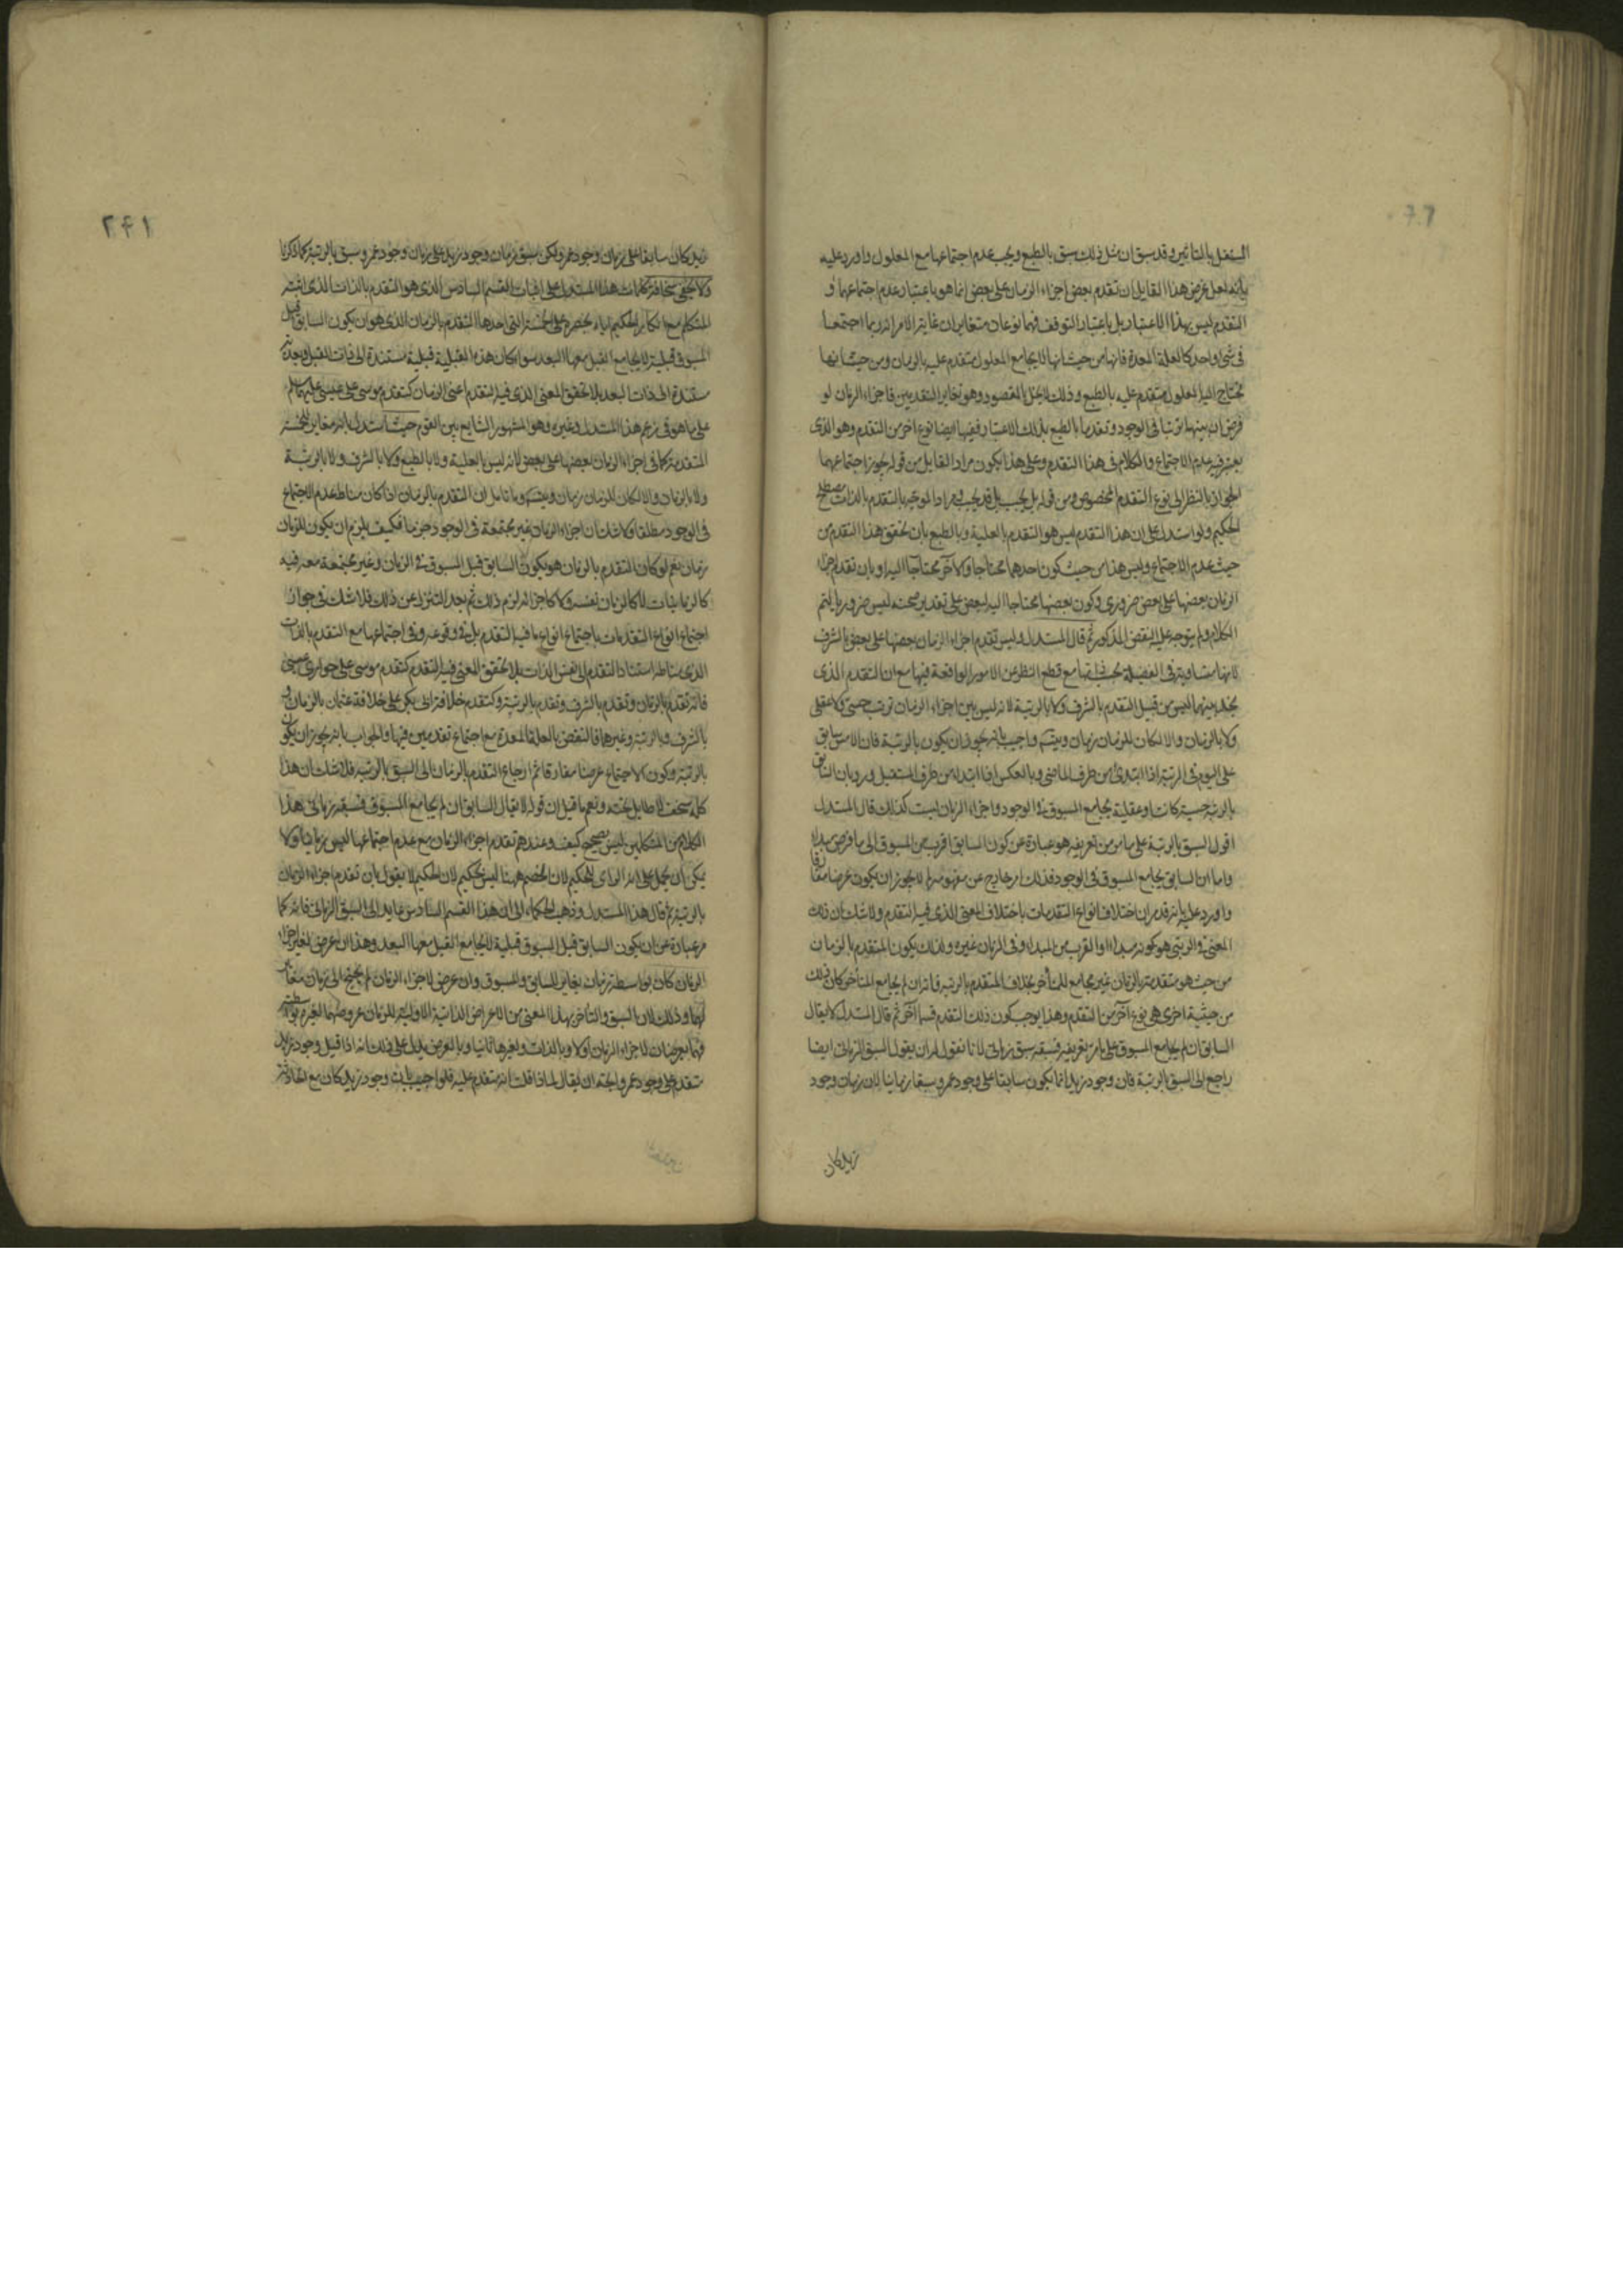 المستقل بالتاثير وقد سبق ان مثل ذلك سبق بالطبع ويجب عدم اجتماعها مع المعلول واورد عليه
بانه لعل غرض هذا القايل ان تقدم بعض اجزاء الزمان على بعض انما هو باعتبار عدم اجتماعهما و
التقدم ليس بهذا الاعتبار بل باعتبار التوقف فهما نوعان متغايران غاية الامر انه ربما اجتمعا
فى شئ واحد كالعلة المعدة فانها من حيث انها لا يجامع المعلول متقدم عليه بالزمان ومن حيث انها
تحتاج اليها المعلول متقدم عليه بالطبع وذلك لا يخل بالمقصود وهو تغاير التقدمين فاجزاء الزمان لو
فرض ان بينهما ترتبا فى الوجود وتقدما بالطبع بذلك الاعتبار ففيها ايضا نوع اخر من التقدم وهو الذى
يعتبر فيه عدم الاجتماع والكلام فى هذا التقدم وعلى هذا يكون مراد القايل من قوله يجوز اجتماعهما
الجواز بالنظر الى نوع التقدم المخصوص ومن قوله بل يجب بل قد يجب مراد الموجه بالتقدم بالذات مصطلح
الحكيم ولو استدل على ان هذا التقدم ليس هو التقدم بالعلية وبالطبع بان تحقق هذا التقدم من
حيث عدم الاجتماع وليس هذا من حيث كون احدهما محتاجا والاخر محتاجا اليه او بان تقدم اجزاء
الزمان بعضها على بعض ضرورى وكون بعضها محتاجا اليه لبعض على تقدير صحته ليس ضروريا لتم
الكلام ولم يتوجه عليه النقض المذكور ثم قال المستدل وليس تقدم اجزاء الزمان بعضها على بعض بالشرف
لانها متساوية فى الفضيلة بحسب مع قطع النظر عن الامور الواقعة فيها مع ان التقدم الذى
يخل بينها ليس من قبيل التقدم بالشرف ولا بالرتبة لانه ليس بين اجزاء الزمان ترتب حسى ولا عقلى
ولا بالزمان والا لكان للزمان زمان ويتسلسل واجيب بانه يجوز ان يكون بالرتبة فان الامس سابق
على اليوم فى الرتبة اذا ابتدئ من طرف الماضى وبالعكس اذا ابتدء من طرف المستقبل ورد بان السابق
بالرتبة حسية كانت او عقلية يجامع المسبوق فى الوجود واجزاء الزمان ليست كذلك قال المستدل
اقول السبق بالرتبة على ما مر من تعريفه هو عبارة عن كون السابق اقرب من المسبوق الى ما فرض مبدا
واما ان السابق يجامع المسبوق فى الوجود فذلك امر خارج عن مفهومه لم لا يجوز ان يكون عرضا مفارقا
واورد عليه بانه قد مر ان اختلاف انواع التقدمات باختلاف المعنى الذى فيه التقدم ولا شك ان ذلك
المعنى فى الرتبى هو كونه مبداء او القرب من المبداء وفى الزمان غيره ولذلك يكون المتقدم بالزمان
من حيث هو متقدم بالزمان غير مجامع للمتأخر بخلاف المتقدم بالرتبه فانه ان لم يجامع المتأخر كان ذلك
من حيثية اخرى هى نوع آخر من التقدم وهذا يوجب كون ذلك التقدم قسما آخر ثم قال المستدل لا يقال
السابق ان لم يجامع المسبوق على ما مر تعريفه فسبقه سبق زمانى لانا نقول له ان يقول السبق الزمانى ايضا
راجع الى السبق بالرتبة فان وجود زيد انما يكون سابقا على وجود عمرو سبقا زمانيا لان زمان وجود
زيد كان
٢٤١
زيد كان سابقا على زمان وجود عمرو لكن سبق زمان وجود زيد على زمان وجود عمرو سبق بالرتبة كما ذكرنا
ولا يخفى سخافة كلمات هذا المستدل على اثبات القسم السادس الذى هو التقدم بالذات الذى اثبته
المتكلم مع انكار الحكيم اياه بحصره على الخمسة التى احدها التقدم بالزمان الذى هو ان يكون السابق قبل
المسبوق قبلية لا يجامع القبل معها البعد سواء كان هذه القبلية قبلية مستندة الى ذات القبل وبعدية
مستندة الى ذات البعد بلا تحقق المعنى الذى فيه التقدم اعنى الزمان كتقدم موسى على عيسى عليهما السلم
على ما هو فى زعم هذا المستدل وغيره وهو المشهور الشايع بين القوم حيث استدل بانه مغاير للخمسة
المتقدمة كما فى اجزاء الزمان بعضها على بعض لانه ليس بالعلية ولا بالطبع ولا بالشرف ولا بالرتبة
ولا بالزمان والا لكان للزمان زمان ويتسلسل وما تامل ان التقدم بالزمان اذا كان مناط عدم الاجتماع
فى الوجود مطلقا ولا شك ان اجزاء الزمان غير مجتمعة فى الوجود جزما فكيف يلزم ان يكون للزمان
زمان نعم لو كان التقدم بالزمان هو يكون السابق قبل المسبوق فى الزمان وغير مجتمعة معه فيه
كالزمانيات لا كالزمان نفسه ولا كاجزائه لزم ذلك ثم بعد التنزل عن ذلك فلا شك فى جواز
اجتماع انواع التقدمات باجتماع انواع ما فيه التقدم بل فى وقوعه وفى اجتماعها مع التقدم بالذات
الذى مناطه استناد التقدم الى نفس الذات بلا تحقق المعنى فيه التقدم كتقدم موسى على حوارى عيسى
فانه تقدم بالزمان وتقدم بالشرف وتقدم بالرتبة وكتقدم خلافة ابى بكر على خلافة عثمان بالزمان و
بالشرف وبالرتبة وغيرهما فالنقض بالعلة المعدة مع اجتماع تقدمين فيها والجواب بانه يجوز ان يكون
بالرتبة وكون الاجتماع عرضا مفارقا ثم ارجاع التقدم بالزمان الى السبق بالرتبة فلا شك ان هذا
كله سخف لا طايل تحته ونعم ما قيل ان قوله لا يقال السابق ان لم يجامع المسبوق فسبقه زمانى هذا
الكلام من المتكلمين ليس بصحيح كيف وعندهم تقدم اجزاء الزمان مع عدم اجتماعها ليس زمانيا ولا
يمكن ان يحمل على انه الحكيم لان الخصم ههنا ليس بحكيم لان الحكيم لا يقول بان تقدم اجزاء الزمان
بالرتبة ثم قال هذا المستدل وذهب الحكماء الى ان هذا القسم السادس عايد الى السبق الزمانى فانه كما
مر عبارة عن ان يكون السابق قبل المسبوق قبلية لا يجامع القبل معها البعد وهذا ان عرض لغير اجزاء
الزمان كان بواسطة زمان يغاير السابق والمسبوق وان عرض لاجزاء الزمان لم يحتج الى زمان مغاير
لهما وذلك لان السبق والتأخر بهذا المعنى من الاعراض الذاتية الاولية للزمان عروضهما لغيره بواسطته
فهما يعرضان لاجزاء الزمان اولا وبالذات ولغيرها ثانيا وبالعرض يدل على ذلك انه اذا قيل وجود زيد
متقدم على وجود عمرو اتجه ان يقال لماذا قلت انه متقدم عليه فلو اجيب بان وجود زيد كان مع الحادثة